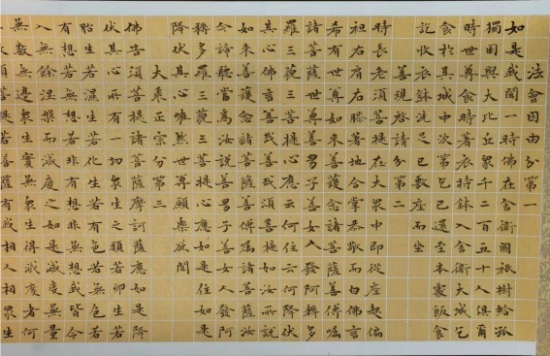 法會因由分第一
如是我聞一時佛在舍衛國祇樹給孤
獨園與大比丘眾千二百五十人俱爾
時世尊食時著衣持鉢入舍衛大城乞
食於其城中次第乞已還至本處飯食
訖收衣鉢洗足已敷座而坐
善現啟請分第二
時長老須菩提在大眾中即從座起偏
袒右肩右膝著地合掌恭敬而白佛言
希有世尊如來善護念諸菩薩善付囑
諸菩薩世尊善男子善女人發阿耨多
羅三藐三菩提心應云何住云何降伏
其心佛言善哉善哉須菩提如汝所說
如來善護念諸菩薩善付囑諸菩薩汝
今諦聽當為汝說善男子善女人發阿
耨多羅三藐三菩提心應如是住如是
降伏其心唯然世尊願樂欲聞
大乘正宗分第三
佛告須菩提諸菩薩摩訶薩應如是降
伏其心所有一切眾生之類若卵生若
胎生若濕生若化生若有色若無色若
有想若無想若非有想非無想我皆令
入無餘涅槃而滅度之如是滅度無量
無數無邊眾生實無眾生得滅度者何
以故須菩提若菩薩有我相人相眾生